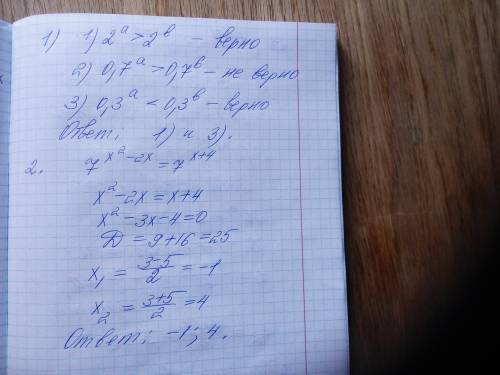 1) 1) 2^a > 2^b - верно
2) 0,7^a > 0,7^b - не верно
3) 0,3^a < 0,3^b - верно
Ответ: 1) и 3).
2. 7^(x^2-2x) = 7^(x+4)
x^2-2x = x+4
x^2-3x-4=0
D = 9+16 = 25
x_1 = (3-5)/2 = -1
x_2 = (3+5)/2 = 4
Ответ: -1; 4.